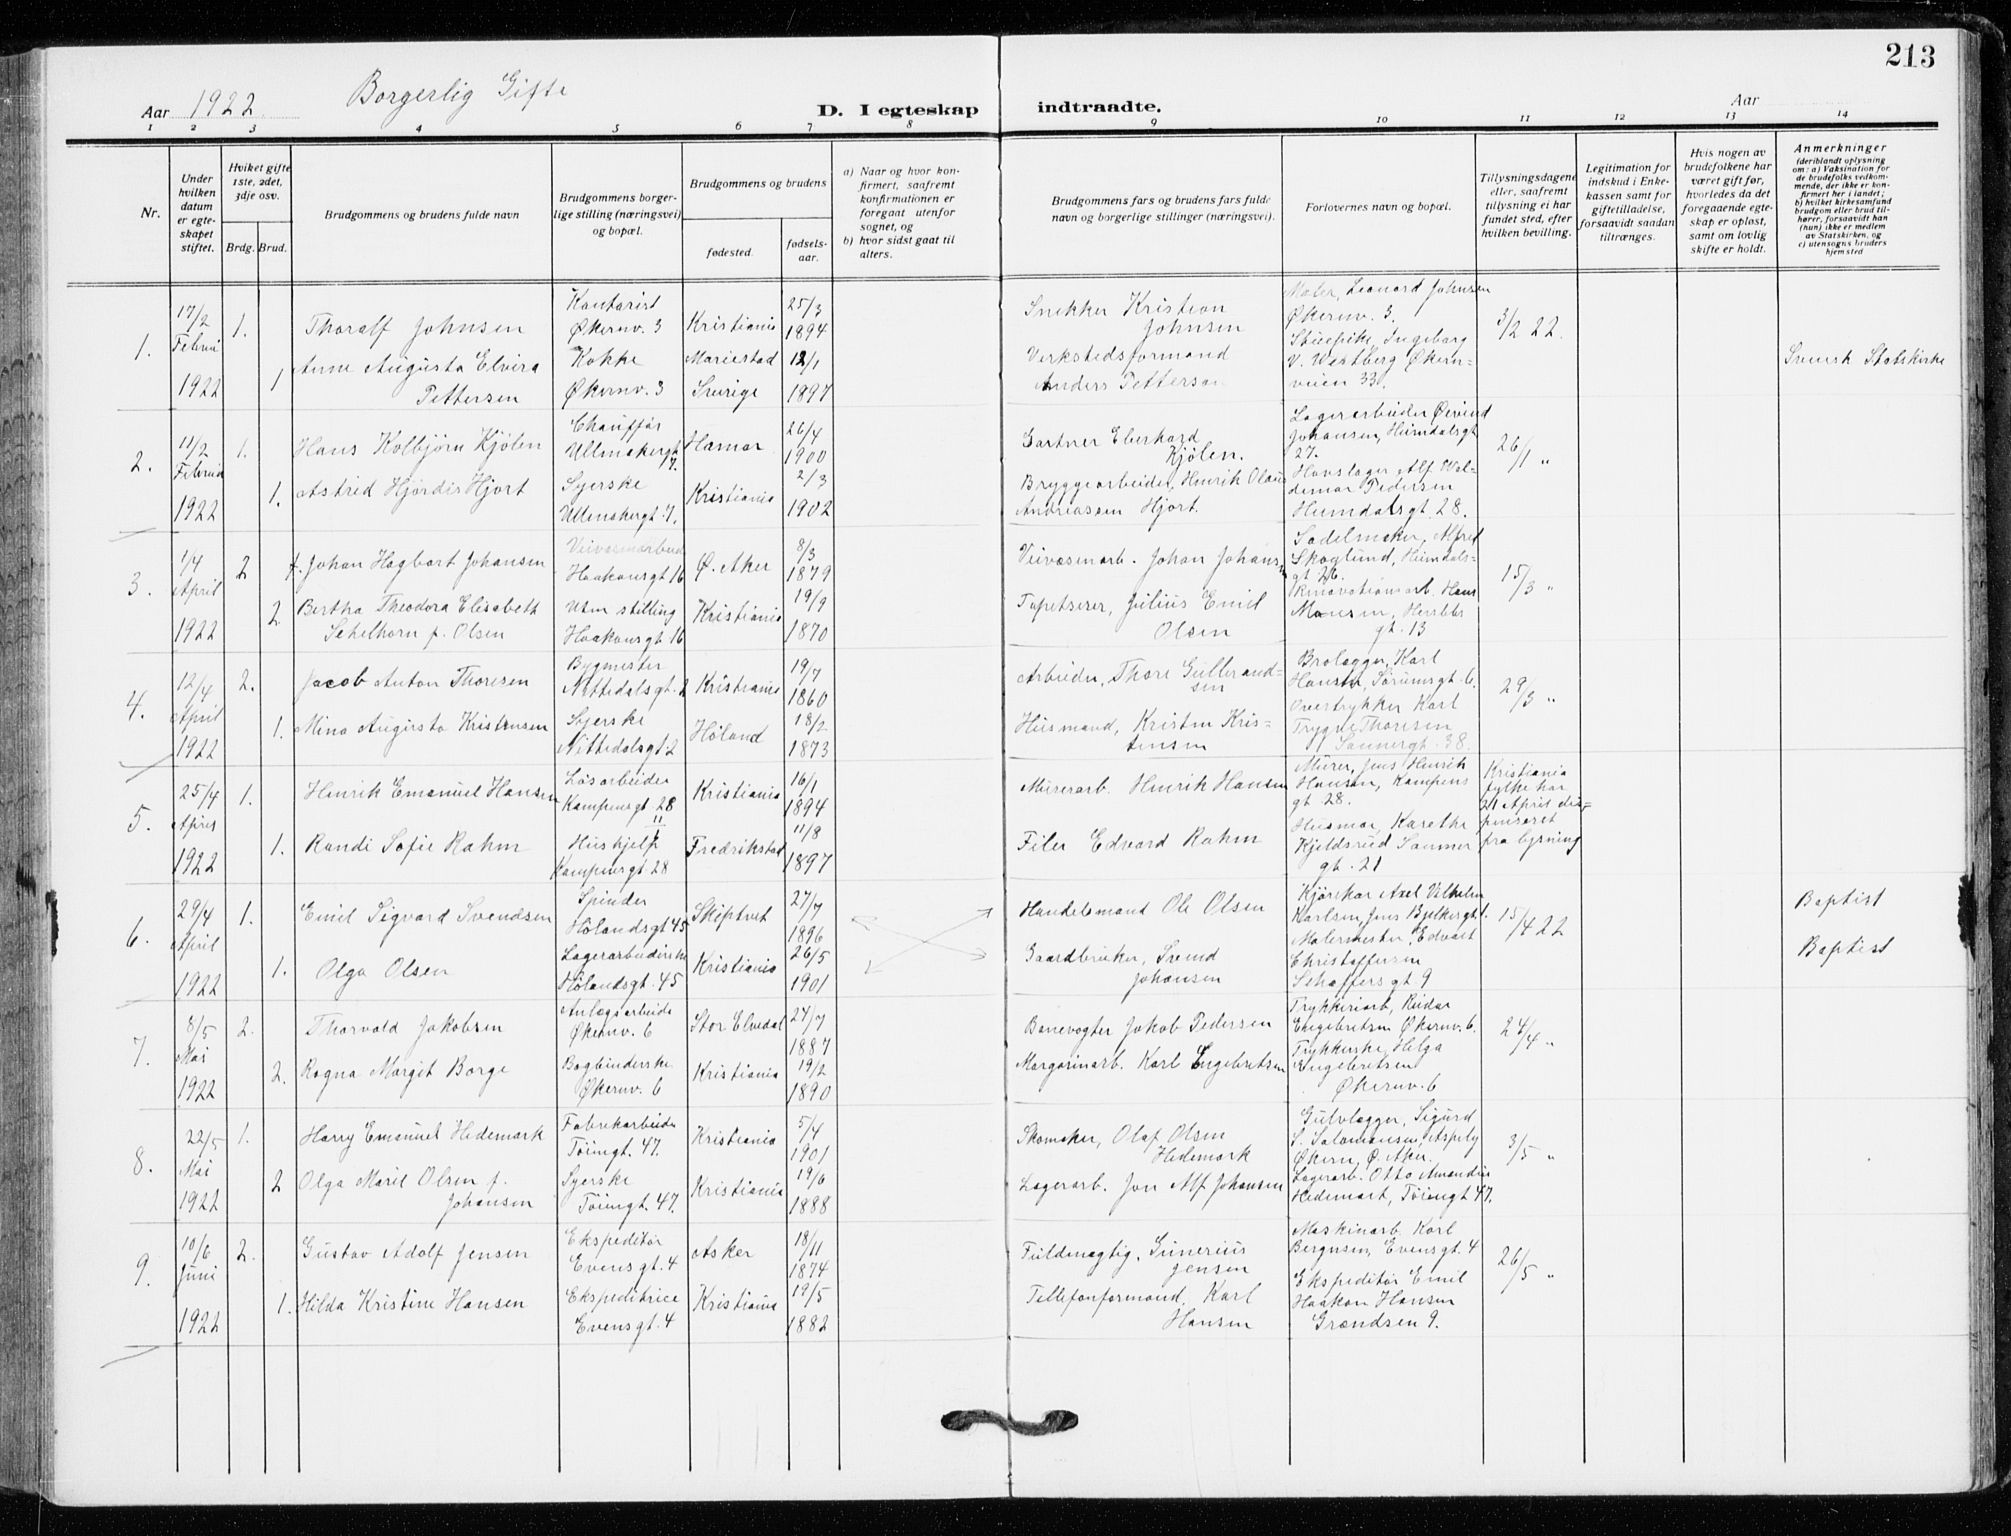 213
Aar 1922 Borgerlig Gifte
D. I egteskap indtraadte.
Aar
1 2 3 4 5 6 7 8 9 10 11 12 13 14
Nr.
Under hvilken datum er egteskapet stiftet.
Hvilket gifte 1ste, 2det, 3dje osv.
Brdg. Brud.
Brudgommens og brudens fulde navn
Brudgommens borgerlige stilling (næringsvei) og bopæl.
Brudgommens og brudens
fødested.
fødselsaar.
a) Naar og hvor konfirmert, saafremt konfirmationen er foregaat utenfor sognet, og
b) hvor sidst gaat til alters.
Brudgommens fars og brudens fars fulde navn og borgerlige stillinger (næringsvei).
Forlovernes navn og bopæl.
Tillysningsdagene eller, saafremt tillysning ei har fundet sted, efter hvilken bevilling.
Legitimation for indskud i Enkekassen samt for giftetilladelse, forsaavidt saadan tiltrænges.
Hvis nogen av brudefolkene har været gift før, hvorledes da det foregaaende egteskap er opløst, samt om lovlig skifte er holdt.
Anmerkninger (deriblandt oplysning om: a) Vaksination for de brudefolks vedkommende, der ikke er konfirmert her i landet; b) hvilket kirkesamfund brudgom eller brud tilhører, forsaavidt han (hun) ikke er medlem av Statskirken, og c) utensogns bruders hjemsted
1. 17/2 Februar 1922
1. Thoralf Johnsen
Kontorist Økernv. 3
Kristiania 25/3 1894
Snekker Kristian Johnsen
Maler, Leonard Johnsen Økernv. 3.
3/2 22.
1 Anne Augusta Elvira Pettersen
Kokke Økernv. 3
Mariestad Sverige 12/1 1897
Verkstedsformand Anders Petterson
Stuepike, Ingeborg V. Westberg Økernveien 33.
Svensk Statskirke
2. 11/2 Februar 1922
1. Hans Kolbjørn Kjølen
Chauffør Ullensakergt 17.
Hamar 26/4 1900
Gartner Eberhard Kjølen.
Lagerarbeider Øivind Johansen, Heimdalsgt 27.
26/1 "
1. Astrid Hjørdis Hjort
Syerske Ullensakergt 7.
Kristiania 2/3 1902
Bryggearbeider, Henrik Olaus Andreassen Hjort.
Hovslager Alf Waldemar Pedersen Heimdalsgt. 28.
3. 1/4 April 1922
2 f. Johan Hagbart Johansen
Veivæsenarbeid Haakonsgt 16
Ø. Aker 8/3 1879
Veivæsenarb. Johan Johansen
Sadelmaker, Alfred Skoglund, Heimdalsgt 26.
15/3 "
2 Bertha Theodora Elisabeth Schelhorn f. Olsen
Uten stilling Haakonsgt. 16
Kristiania 19/9 1870
Tapetserer, Julius Emil Olsen
Renovationsarb. Hans Monsen, Herslebsgt. 13
4. 12/4 April 1922
2. Jacob Anton Thoresen
Bygmester Nittedalsgt. 2
Kristiania 19/7 1860
Arbeider, Thore Gulbrandsen
Brolægger, Karl Hansen, Sørumsgt. 6.
29/3 "
1. Mina Augusta Kristensen
Syerske Nittedalsgt. 2
Høland 18/2 1873
Husmand, Kristen Kristensen
Overtrykker Karl Trygve Thoresen Sannergt. 38.
5. 25/4 April 1922
1. Henrik Emanuel Hansen
Løsarbeider Kampensgt. 28 II
Kristiania 16/1 1894
Murerarb. Henrik Hansen
Murer, Jens Henrik Hansen, Kampens gt 28.
Kristiania fylke har 21 April dispenseret fra lysning
1. Randi Sofie Rahm
Hushjelp Kampensgt. 28
Fredrikstad 11/8 1897
Filer Edvard Rahm
Husmor, Karethe Kjeldsrud Sannergt. 21
6. 29/4 April 1922
1. Emil Sigvard Svendsen
Spinder Hölandsgt 45
Skiptvet 27/7 1896
Handelsmand Ole Olsen
Kjørekar Axel Vilhelm Karlsen, Jens Bjelkesgt 1.
15/4 22
Baptist
1. Olga Olsen
Lagerarbeiderske Hölandsgt. 45
Kristiania 26/5 1901
Gaardbruker, Svend Johansen
Malermester, Edvart Christoffersen Schaffers gt 9
Baptist
7. 8/5 Mai 1922
2. Thorvald Jakobsen
Anlægsarbeider Økernv. 6
Stor Elvedal 24/7 1887
Banevogter Jakob Pedersen
Trykkeriarb, Reidar Engebretsen Økernv. 6.
24/4 "
2. Ragna Margit Borge
Bogbinderske Økernv. 6
Kristiania 19/2 1890
Margarinarb. Karl Engebretsen
Trykkerske, Helga Engebretsen Økernv. 6
8. 22/5 Mai 1922
1. Harry Emanuel Hedemark
Fabrikarbeider Töiengt. 47.
Kristiania 5/4 1901
Skomaker, Olaf Olsen Hedemark
Gulvlægger, Sigurd S. Salomonsen, Aspely Økern, Ø. Aker.
3/5 "
2 Olga Marie Olsen f. Johansen
Syerske Töiengt. 47.
Kristiania 19/6 1888
Lagerarb. Jon Alf Johansen
Lagerarb. Otto Amandus Hedemark, Töiengt 47.
9. 10/6 Juni 1922
2. Gustav Adolf Jensen
Ekspeditør Evensgt. 4
Asker 18/11 1874
Fuldmægtig, Gunerius Jensen
Maskinarb. Karl Bergersen, Evensgt. 4
26/5 "
1. Hilda Kristine Hansen
Ekspeditrice Evensgt. 4
Kristiania 19/5 1882
Tellefonformand, Karl Hansen
Ekspeditör Emil Haakon Hansen Grændsen 9.